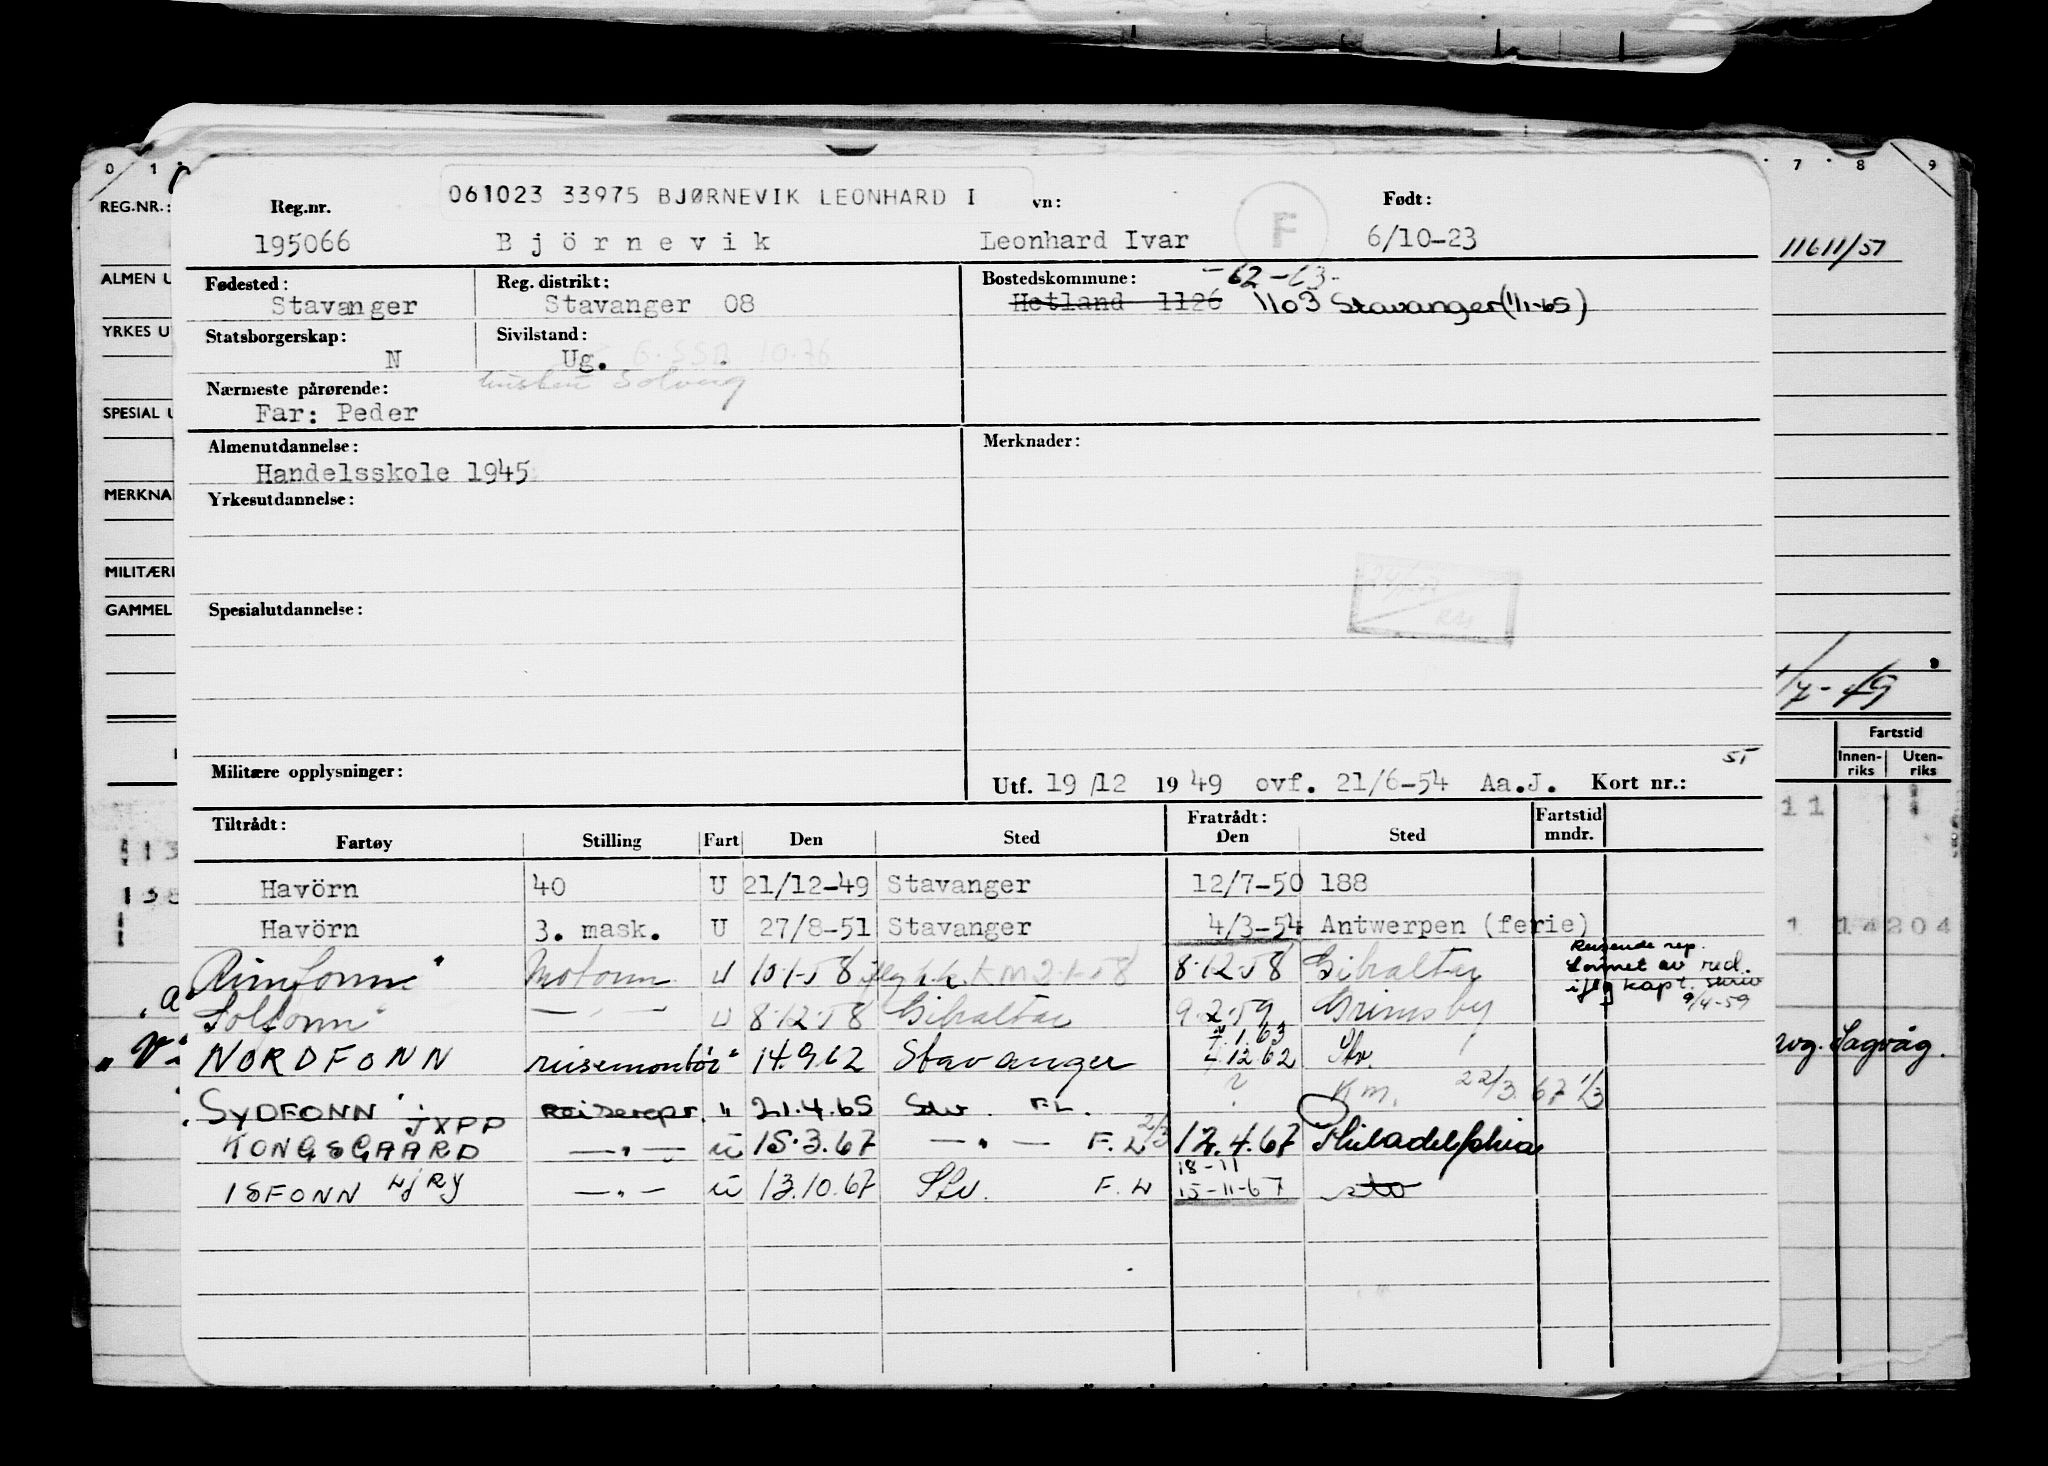 0 1 7 8 9
REG.NR.: Reg.nr. 061023 33975 BJØRNEVIK LEONHARD I vn: F Født:
195066 Björnevik Leonhard Ivar 6/10-23 11611/51
ALMEN U Fødested: Reg. distrikt: Bostedskommune: -62-63-
Stavanger Stavanger 08 Hetland 1126 1103 Stavanger (1/1-65)
YRKES U Statsborgerskap: Sivilstand:
N Ug.
Nærmeste pårørende: Solveig
SPESIAL U Far: Peder
Almenutdannelse: Merknader:
Handelsskole 1945
MERKNA Yrkesutdannelse:
MILITÆRE
GAMMEL Spesialutdannelse:
1/7-49
Fartstid
Innenriks Utenriks
ST
Militære opplysninger: Utf. 19/12 1949 ovf. 21/6-54 Aa.J. Kort nr.:
Tiltrådt: Fratrådt: Fartstid mndr.
Fartøy Stilling Fart Den Sted Den Sted
Havörn 40 U 21/12-49 Stavanger 12/7-50 188
Havörn 3. mask. U 27/8-51 Stavanger 4/3-54 Antwerpen (ferie)
1 14204
Rimfonn" Motorm U 10.1.58 iflg h.k. KM 2.1.58 8.12.58 Gibraltar
Reisende rep. lønnet av red. iflg kapt. skriv 9/4-59
Solfonn" — " — U 8.12.58 Gibraltar 9.2.59 Grimsby
7.1.63
NORDFONN reisemontör " 14.9.62 Stavanger 4.12.62 Stv. Sagvåg.
? Km. 22/3.67 1/3
SYDFONN JXPP Reiserepr. " 21.4.65 Stv. F.L.
KONGSGAARD — " — U 15.3.67 — " — F.L 2/3 12.4.67 Philadelphia
18-11
ISFONN LJRY — " — U 13.10.67 Stv. F.L 15-11-67 sto